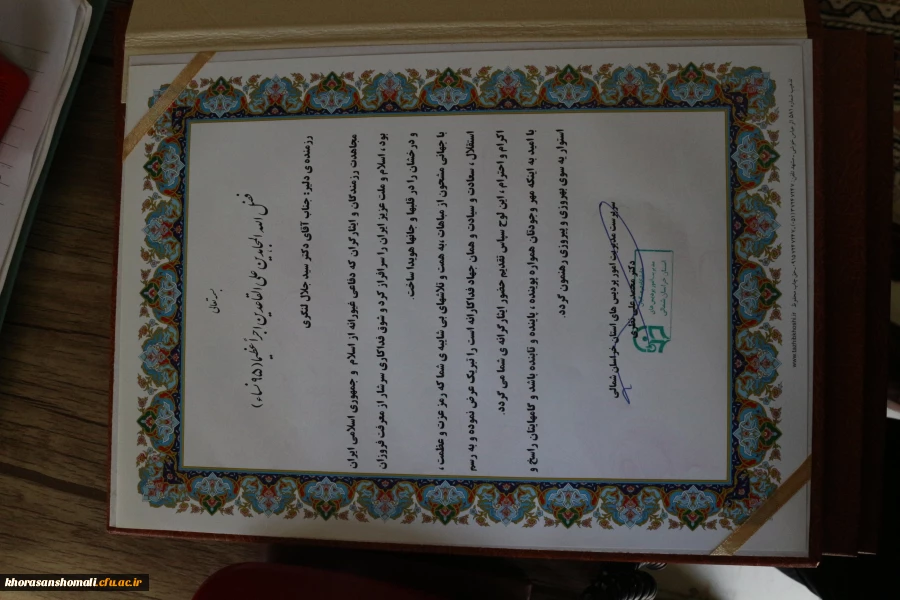 بسمه تعالی
فضل الله المجاهدین علی القاعدین اجراً عظیما (۹۵ نساء)
رزمنده ی دلیر؛ جناب آقای دکتر سید جلال لنگری
مجاهدت رزمندگان و ایثارگران که دفاعی غیورانه از اسلام و جمهوری اسلامی ایران
بود، اسلام و ملت عزیز ایران را سرافراز کرد و شوق فداکاری سرشار از معرفت فروزان
و درخشان را در قلبها و جانها هویدا ساخت.
با جهانی مشحون از مباهات، به همت و تلاشهای بی شایبه ی شما که رمز عزت و عظمت ،
استقلال ، سعادت و سیادت و همان جهاد فداکارانه است را تبریک عرض نموده و به رسم
اکرام و احترام ، این لوح سپاس تقدیم حضور ایثارگرانه ی شما می گردد.
با امید به اینکه مهر وجودتان همواره پوینده ، پاینده و تابنده باشد و گامهایتان راسخ و
استوار به سوی بهروزی و پیروزی رهنمون گردد.
سرپرست مدیریت امور پردیس های استان خراسان شمالی
دکتر محمد علی نظری
استان خراسان شمالی
khorasanshomali.cfu.ac.ir